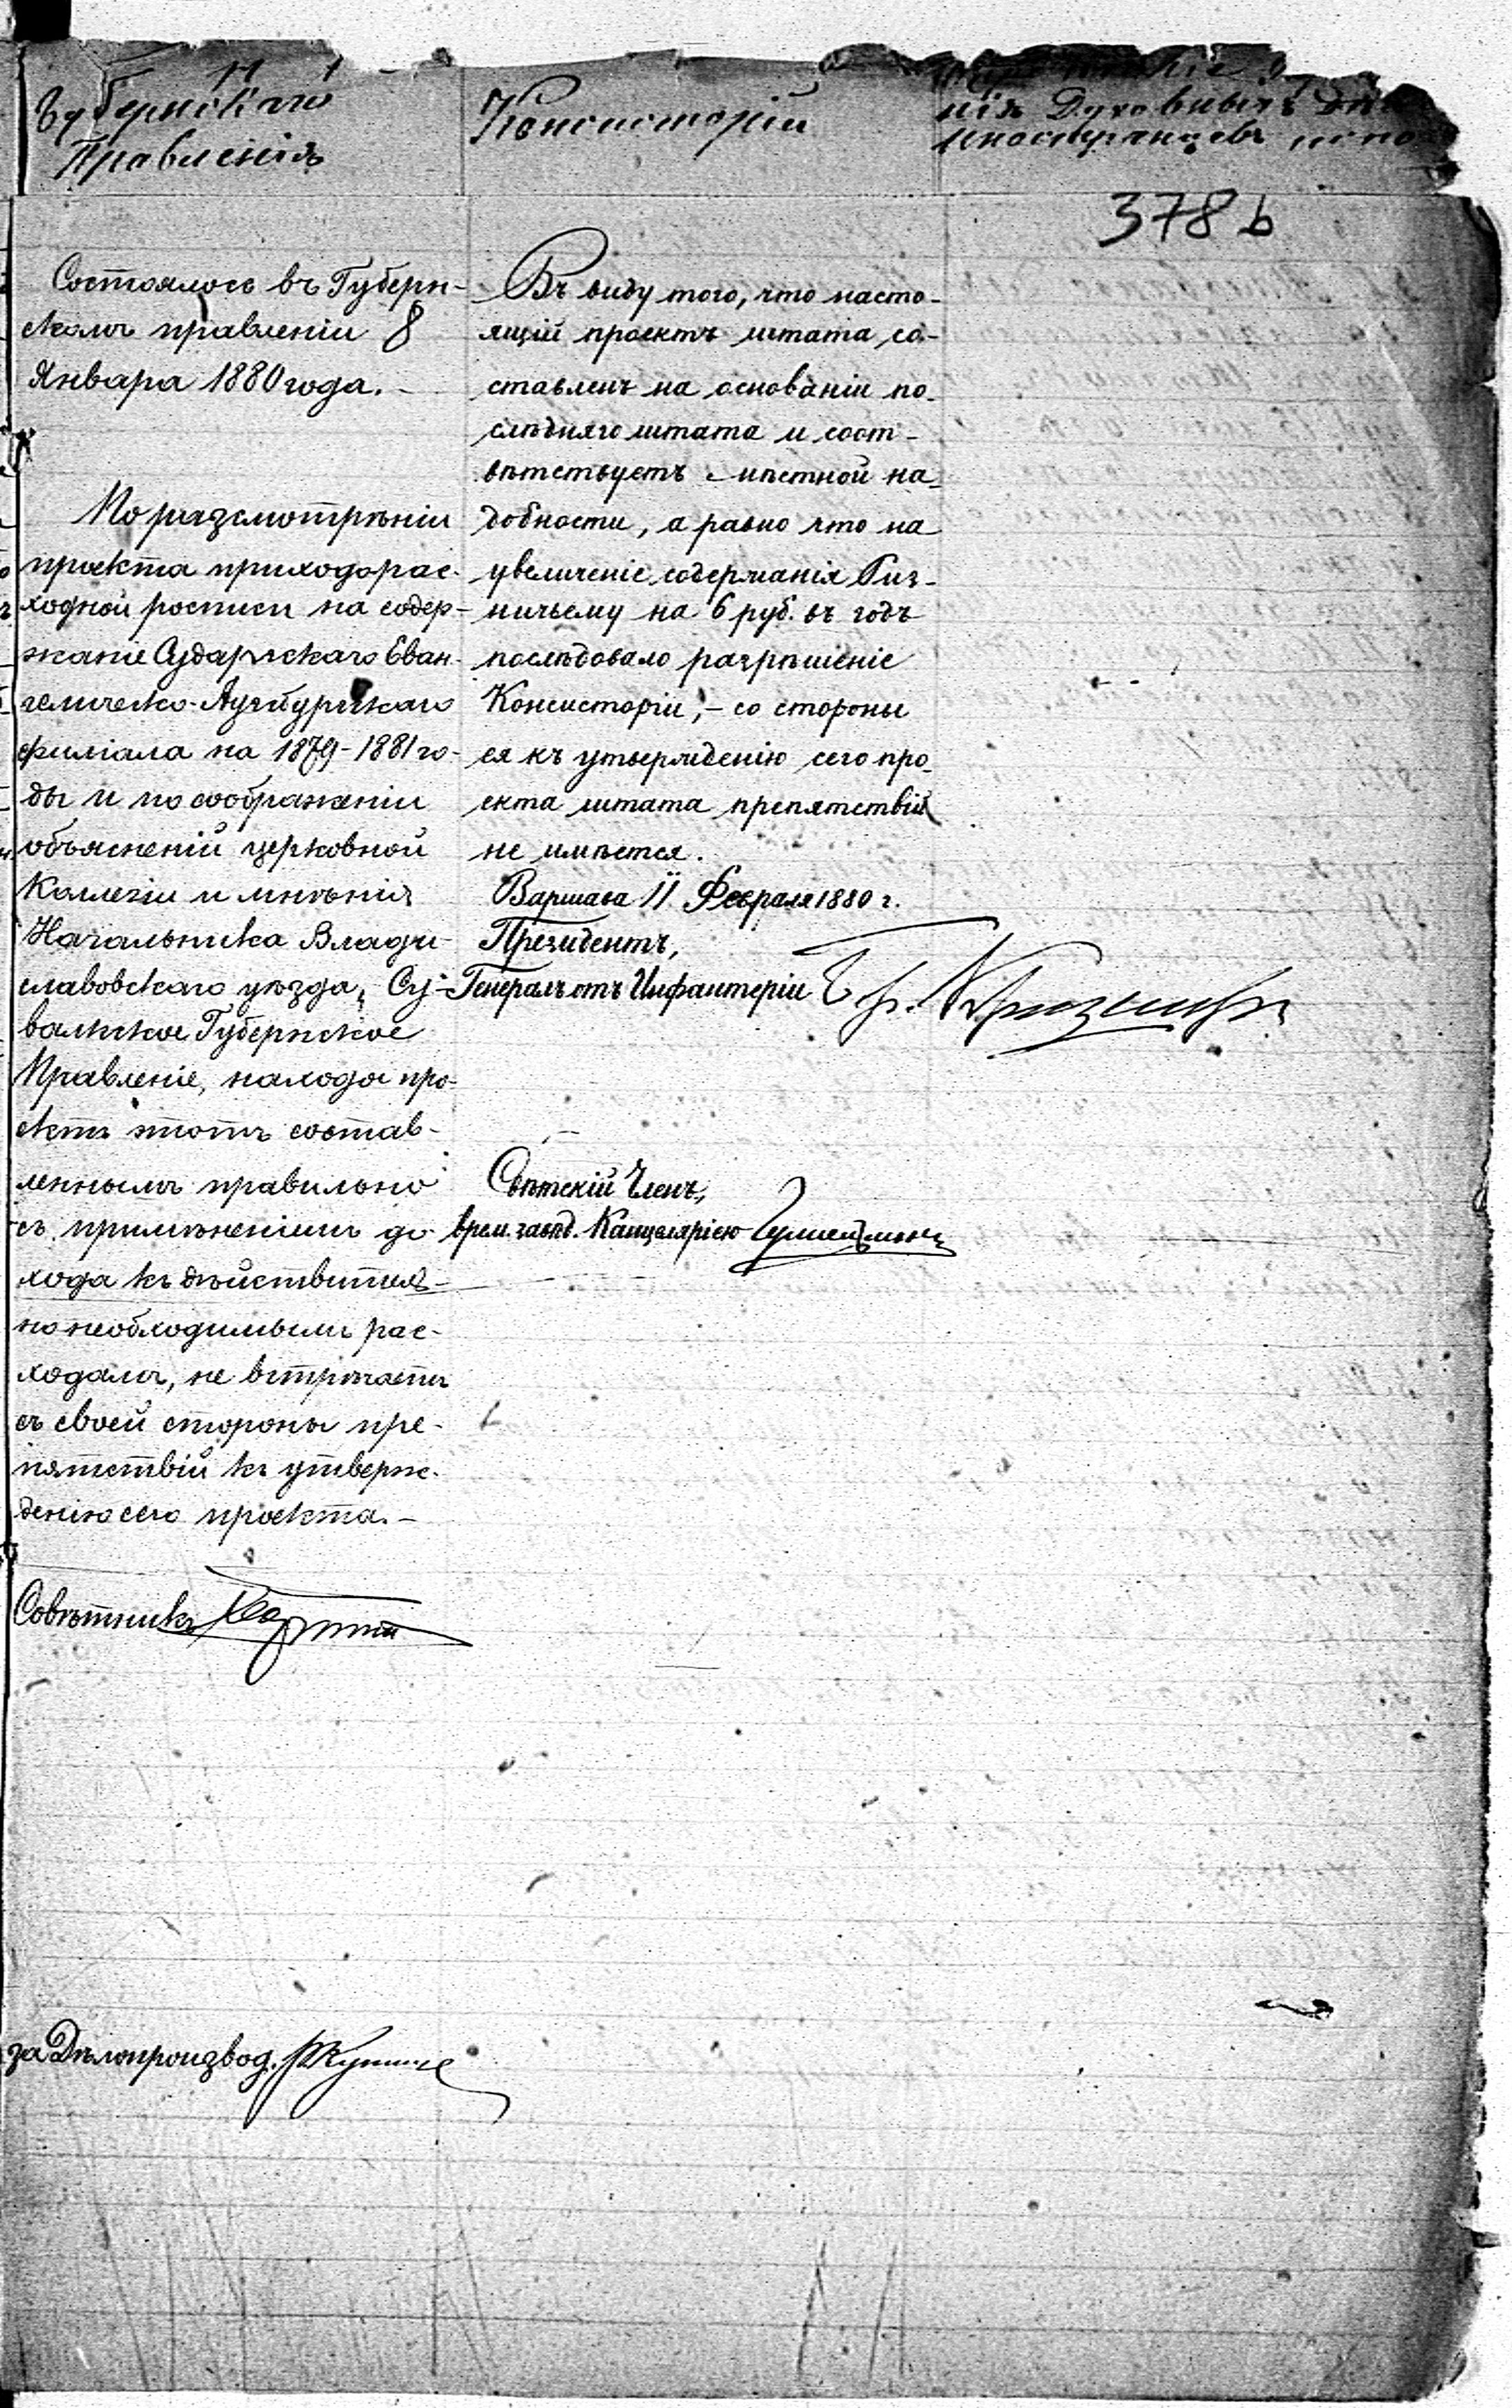 Губернскаго
Правленія
Состоялось въ Губерн-
скомъ правленіи 8
Января 1880 года. -
По разсмотрѣніи
проекта приходорас-
ходной росписи на содер-
жаніе Сударгскаго Еван-
гелическо-Аугсбургскаго
филіала на 1879-1881 го-
ды и по соображеніи
объясненій церковной
Коллегіи и мнѣнія
Начальника Влади-
славовскаго уѣзда, Су-
валкское Губернское
Правленіе, находя про-
ектъ этотъ состав-
леннымъ правильно
съ примѣненіемъ до-
хода къ дѣйствитель-
но необходимымъ рас-
ходамъ, не встрѣчаетъ
съ своей стороны пре-
пятствій къ утверж-
денію сего проекта. -
Совѣтникъ
за Дѣлопроизвод.
Консисторіи
Въ виду того, что насто-
ящій проектъ штата со-
ставленъ на основаніи по-
слѣдняго штата и соот-
вѣтствуетъ мѣстной на-
добности, а равно что на
увеличеніе содержанія Риз-
ничьему на 6 руб. въ годъ
послѣдовало разрѣшеніе
Консисторіи, - со стороны
ея къ утвержденію сего про-
екта штата препятствій
не имѣется.
Варшава 11 Февраля 1880 г.
Президентъ,
Генералъ отъ Инфантеріи
Свѣтскій Членъ,
врем. завѣд. Канцеляріею
нія Духовныхъ дѣлъ
иностранцевъ испо
378 b